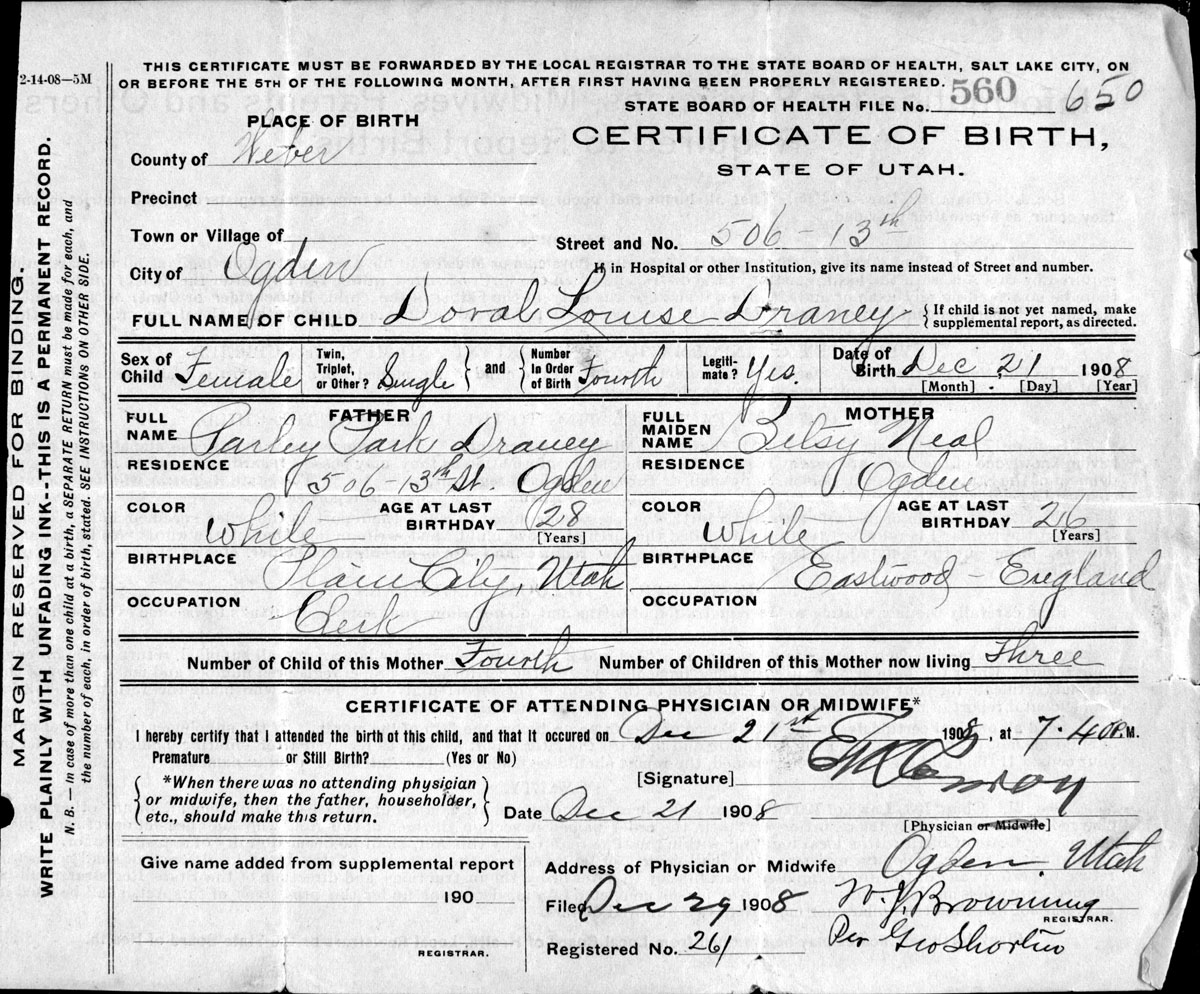 2-14-08—5M
THIS CERTIFICATE MUST BE FORWARDED BY THE LOCAL REGISTRAR TO THE STATE BOARD OF HEALTH, SALT LAKE CITY, ON
OR BEFORE THE 5TH OF THE FOLLOWING MONTH, AFTER FIRST HAVING BEEN PROPERLY REGISTERED.
STATE BOARD OF HEALTH FILE No. 560 650
PLACE OF BIRTH
CERTIFICATE OF BIRTH,
STATE OF UTAH.
County of Weber
Precinct
Town or Village of
Street and No. 506 - 13th
City of Ogden
If in Hospital or other Institution, give its name instead of Street and number.
FULL NAME OF CHILD Doval Louise Draney { If child is not yet named, make
supplemental report, as directed.
Sex of Child Female { Twin, Triplet, or Other? Single } and { Number In Order of Birth Fourth Legiti- mate? Yes. Date of Birth Dec 21 1908
[Month] [Day] [Year]
FATHER
MOTHER
FULL NAME Parley Park Draney
FULL MAIDEN NAME Betsy Neal
RESIDENCE 506-13th St. Ogden
RESIDENCE Ogden
COLOR White AGE AT LAST BIRTHDAY 28 [Years]
COLOR White AGE AT LAST BIRTHDAY 26 [Years]
BIRTHPLACE Plain City, Utah
BIRTHPLACE Eastwood - England
OCCUPATION Clerk
OCCUPATION
Number of Child of this Mother Fourth Number of Children of this Mother now living Three
CERTIFICATE OF ATTENDING PHYSICIAN OR MIDWIFE*
I hereby certify that I attended the birth of this child, and that it occured on Dec 21st 1908, at 7.40 P.M.
Premature or Still Birth? (Yes or No)
{ *When there was no attending physician
or midwife, then the father, householder,
etc., should make this return. }
[Signature]
Date Dec 21 1908
[Physician or Midwife]
Give name added from supplemental report
190
REGISTRAR.
Address of Physician or Midwife Ogden, Utah
Filed Dec 29 1908 W. J. Browning
REGISTRAR.
Registered No. 261 Per Geo Shorten
MARGIN RESERVED FOR BINDING.
WRITE PLAINLY WITH UNFADING INK--THIS IS A PERMANENT RECORD.
N. B. — In case of more than one child at a birth, a SEPARATE RETURN must be made for each, and
the number of each, in order of birth, stated. SEE INSTRUCTIONS ON OTHER SIDE.